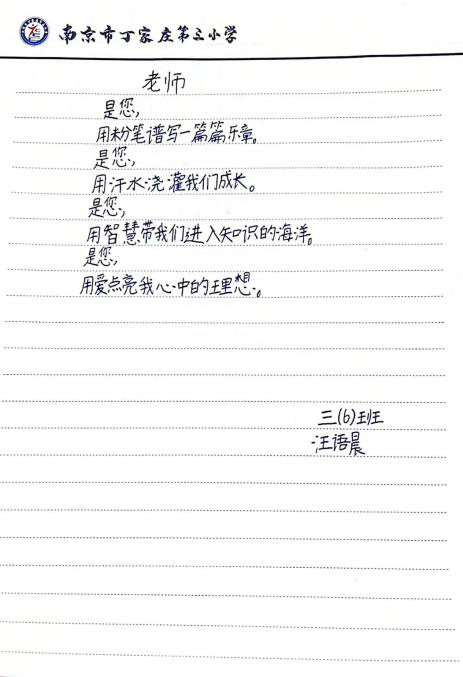 南京市丁家庄第三小学
老师
是您,
用粉笔谱写一篇篇乐章。
是您,
用汗水浇灌我们成长。
是您,
用智慧带我们进入知识的海洋。
是您,
用爱点亮我心中的理想。
三(6)班
汪语晨